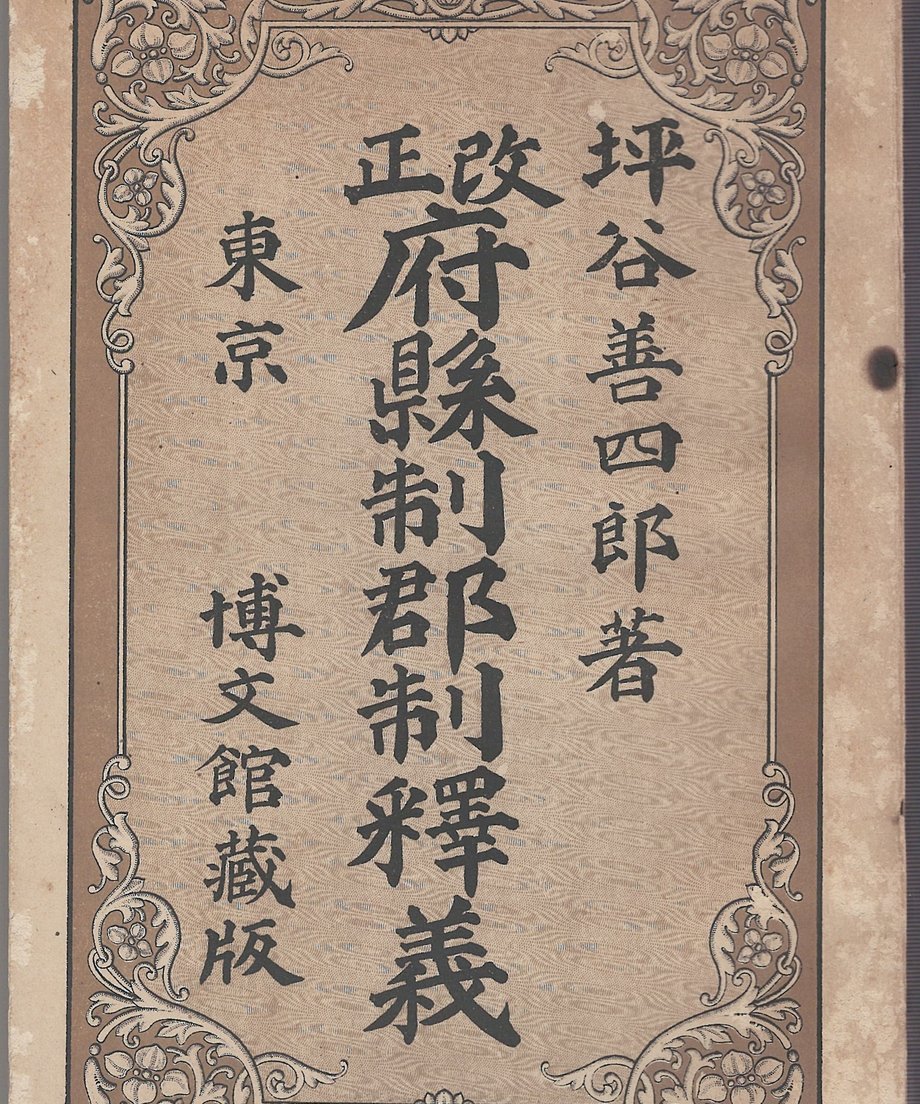 坪谷善四郎著
改正
府縣制郡制釋義
東京 博文館藏版